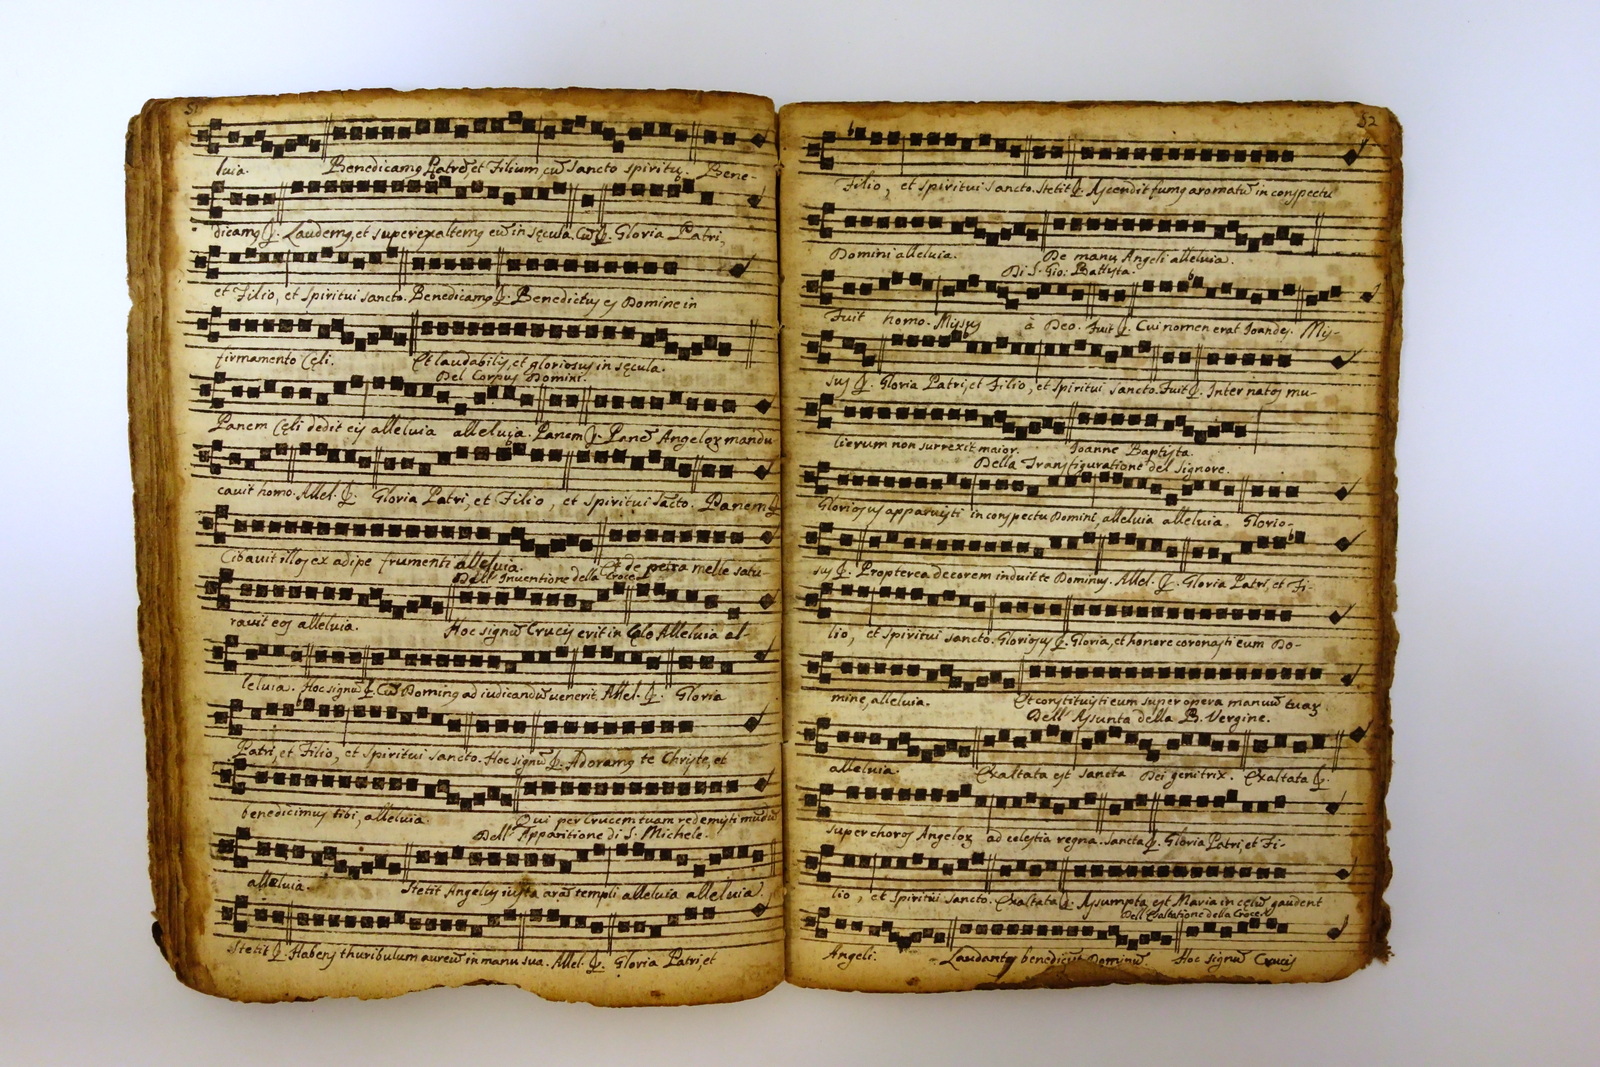 51
luia. Benedicamꝰ Patrẽ, et Filium, cũ Sancto spiritu. Bene-
dicamꝰ ℣. Laudemꝰ, et superexaltemꝰ eũ in sęcula. Cũ ℣. Gloria Patri,
et Filio, et Spiritui sancto. Benedicamꝰ ℣. Benedictus es Domine in
firmamento Cęli. Et laudabilis, et gloriosus in sęcula.
Del Corpus Domini.
Panem Cęli dedit eis alleluia alleluia. Panem ℣. Panẽ Angeloꝝ mandu
cavit homo. Allel. ℣. Gloria Patri, et Filio, et Spiritui Sãcto. Panem ℣
Cibavit illos ex adipe frumenti alleluia. Et de petra melle satu-
Dell' Inventione della Croce
ravit eos alleluia. Hoc signũ Crucis erit in Cęlo Alleluia al-
leluia. Hoc signũ ℣. Cũ Dominꝰ ad iudicandũ venerit. Allel. ℣. Gloria
Patri, et Filio, et Spiritui sancto. Hoc signũ ℣. Adoramꝰ te Christe, et
benedicimus tibi, alleluia. Qui per Crucem tuam redemisti mũdũ
Dell' Apparitione di S. Michele.
alleluia. Stetit Angelus iuxta arã templi alleluia alleluia.
Stetit ℣. Habens thuribulum aureũ in manu sua. Allel. ℣. Gloria Patri, et
52
Filio, et Spiritui Sancto. Stetit ℣. Ascendit fumꝰ aromatũ in conspectu
Domini alleluia. De manu Angeli alleluia.
Di S. Gio: Battista.
Fuit homo. Missus à Deo. Fuit ℣. Cui nomen erat Joannes. Mis-
sus ℣. Gloria Patri, et Filio, et Spiritui Sancto. Fuit ℣. Inter natos mu-
lierum non surrexit maior. Joanne Baptista.
Della Transfiguratione del Signore.
Gloriosus apparuisti in conspectu Domini, alleluia alleluia. Glorio-
sus ℣. Propterea decorem induit te Dominus. Allel. ℣. Gloria Patri, et Fi-
lio, et Spiritui sancto. Gloriosus ℣. Gloria, et honore coronasti eum Do-
mine, alleluia. Et constituisti eum super opera manuũ tuaꝝ
Dell' Assunta della B. Vergine.
alleluia. Exaltata est sancta Dei genitrix. Exaltata ℣.
super choros Angeloꝝ ad celestia regna. Sancta ℣. Gloria Patri, et Fi-
lio, et Spiritui Sancto. Exaltata ℣. Assumpta est Maria in cęlũ, gaudent
Dell' Exaltatione della Croce
Angeli. Laudantes benedicũt Dominũ. Hoc signũ Crucis